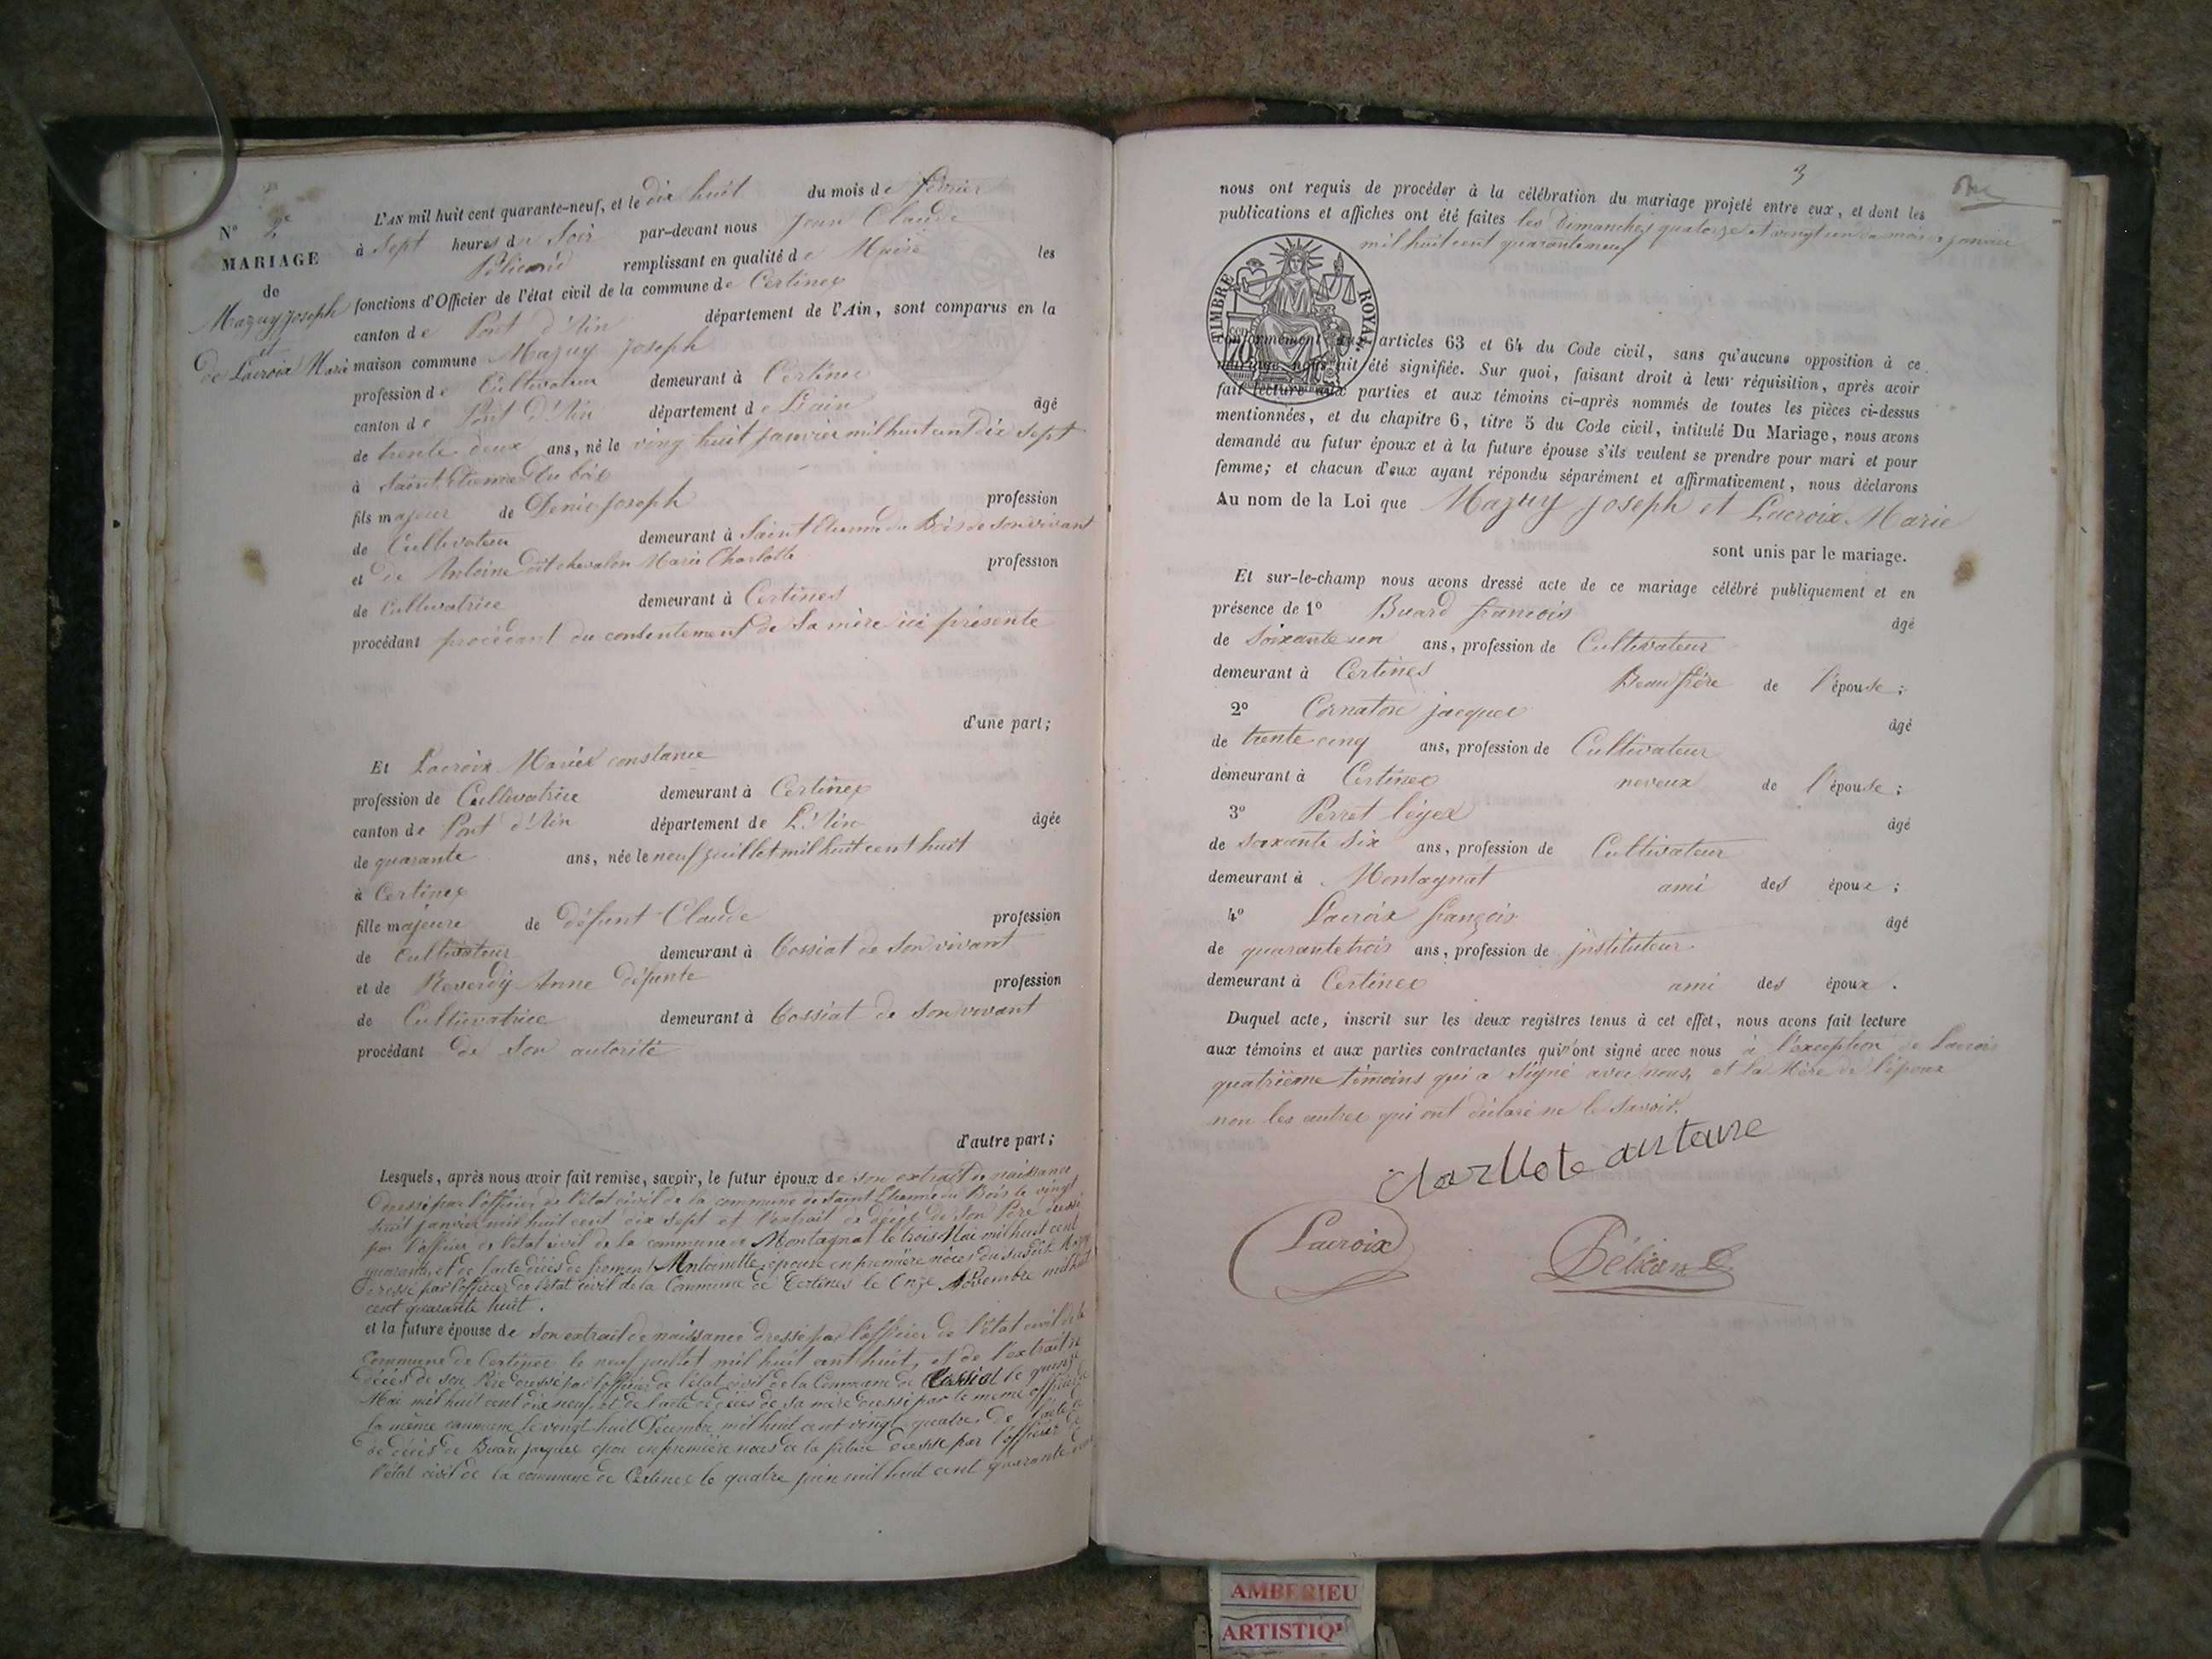 N° 2e
MARIAGE
de
Mazuy joseph
et
de Lacroix Marie
L'AN mil huit cent quarante-neuf, et le dix huit du mois de février
à Sept heures du Soir par-devant nous Jean Claude
Pélicand remplissant en qualité de Maire les
fonctions d'Officier de l'état civil de la commune de Certines
canton de Pont d'Ain département de l'Ain, sont comparus en la
maison commune Mazuy joseph
profession de Cultivateur demeurant à Certines
canton de Pont d'Ain département de L'ain âgé
de trente deux ans, né le ving huit janvier mil huit cent dix sept
à Saint Etienne du bois
fils majeur de Denis joseph profession
de Cultivateur demeurant à Saint Etienne du Bois de son vivant
et de Antoine dit chevalon Marie Charlotte profession
de Cultivatrice demeurant à Certines
procédant procédant du contentement de Sa mère ici présente
d'une part;
Et Lacroix Marie constance
profession de Cultivatrice demeurant à Certines
canton de Pont d'Ain département de L'Ain âgée
de quarante ans, née le neuf juillet mil huit cent huit
à Certines
fille majeure de défunt Claude profession
de Cultivateur demeurant à Tossiat de Son vivant
et de Reverdy Anne défunte profession
de Cultivatrice demeurant à Tossiat de Son vivant
procédant de Son autorité
d'autre part;
Lesquels, après nous avoir fait remise, savoir, le futur époux de son extrait de naissance
dressé par l'officier de l'état civil de la commune de Saint Etienne du Bois le vingt
huit janvier mil huit cent dix sept et l'extrait de décès de Son Père dressé
par l'officier de l'état civil de la commune de Montagnat le trois Mai mil huit cent
quarante, et de l'acte décès de froment Antoinette, épouse en première nôces du susdit
dressé par l'officier de l'état civil de la Commune de Certines le Onze Novembre mil huit
cent quarante huit.
et la future épouse de son extrait de naissance dressé par l'officier de l'état civil de la
Commune de Certines le neuf juillet mil huit cent huit, et de l'extrait de
décès de son Père dressé par l'officier de l'état civil de la Commune de Tossiat le quinze
Mai mil huit cent dix neuf, et de l'acte de décès de sa mère dressé par le même officier de
la même commune le vingt huit Décembre mil huit cent vingt quatre, de l'acte
de décès de Buard jacques époux en première noces de la future dressé par l'officier de
l'état civil de la commune de Certines le quatre juin mil huit cent quarante
3
nous ont requis de procéder à la célébration du mariage projeté entre eux, et dont les
publications et affiches ont été faites les dimanches quatorze et vingt un du mois de janvier
mil huit cent quarante neuf
TIMBRE ROYAL
70
conformément aux articles 63 et 64 du Code civil, sans qu'aucune opposition à ce
mariage nous ait été signifiée. Sur quoi, faisant droit à leur réquisition, après avoir
fait lecture aux parties et aux témoins ci-après nommés de toutes les pièces ci-dessus
mentionnées, et du chapitre 6, titre 5 du Code civil, intitulé Du Mariage, nous avons
demandé au futur époux et à la future épouse s'ils veulent se prendre pour mari et pour
femme; et chacun d'eux ayant répondu séparément et affirmativement, nous déclarons
Au nom de la Loi que Mazuy joseph et Lacroix Marie
sont unis par le mariage.
Et sur-le-champ nous avons dressé acte de ce mariage célébré publiquement et en
présence de 1° Buard francois âgé
de Soixante un ans, profession de Cultivateur
demeurant à Certines Beau frère de l'épouse;
2° Cornaton jacques âgé
de trente cinq ans, profession de Cultivateur
demeurant à Certines neveux de l'épouse;
3° Perret léger âgé
de soixante six ans, profession de Cultivateur
demeurant à Montagnat ami des époux;
4° Lacroix françois âgé
de quarante trois ans, profession de jnstituteur
demeurant à Certines ami des époux.
Duquel acte, inscrit sur les deux registres tenus à cet effet, nous avons fait lecture
aux témoins et aux parties contractantes qui n'ont signé avec nous à l'exception de Lacroix
quatrième témoins qui a Signé avec nous, et la Mère de l'époux
non les autres qui ont déclaré ne le Savoir.
charllote antoine
Lacroix
Pélicand
AMBERIEU
ARTISTIQ